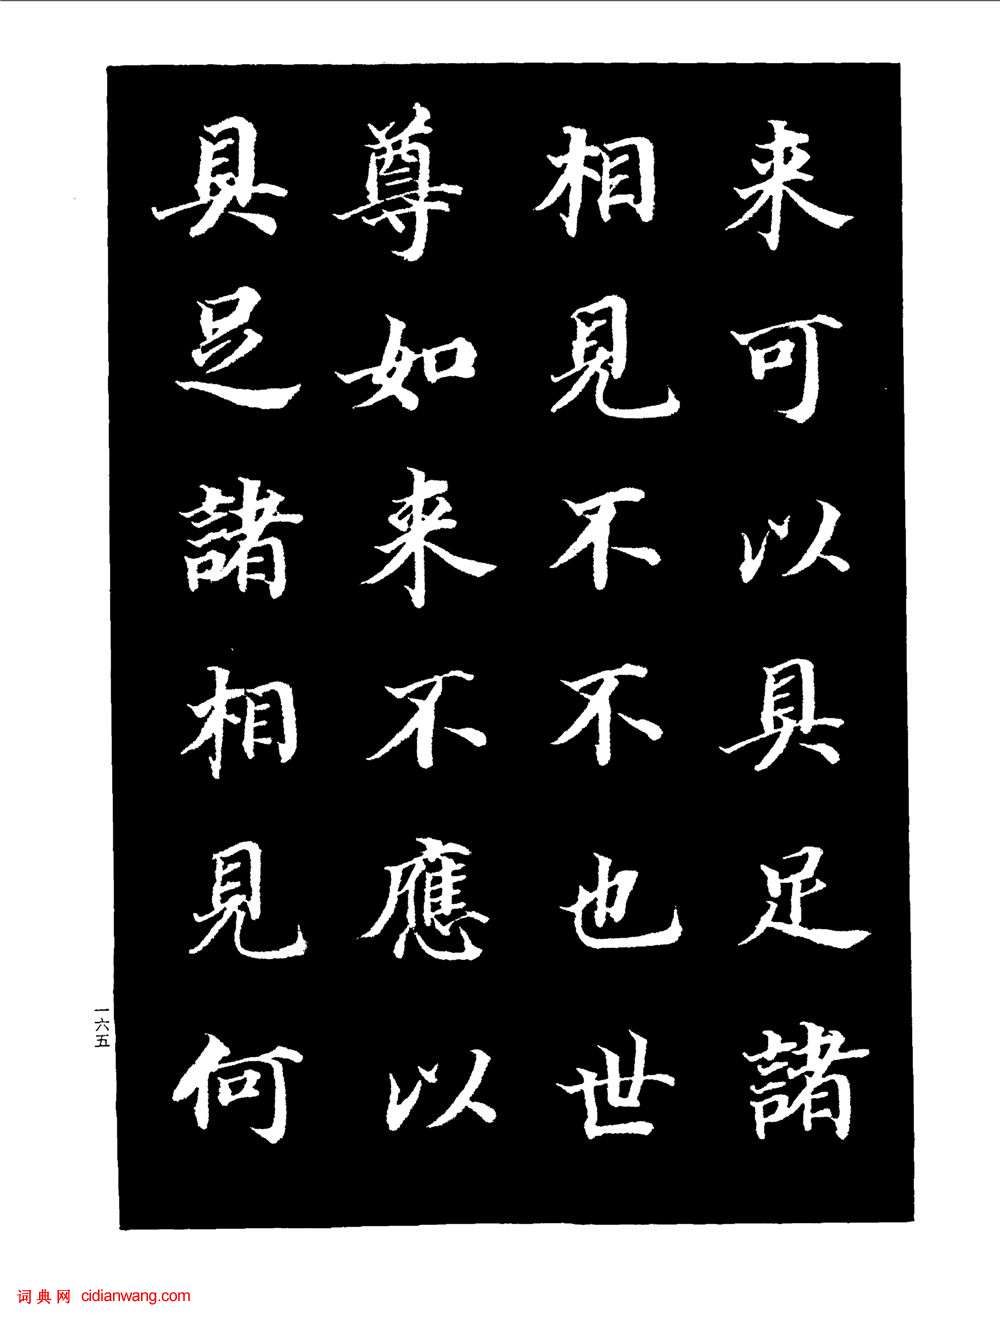 来可以具足諸
相見不不也世
尊如来不應以
具足諸相見何
一六五
词典网 cidianwang.com